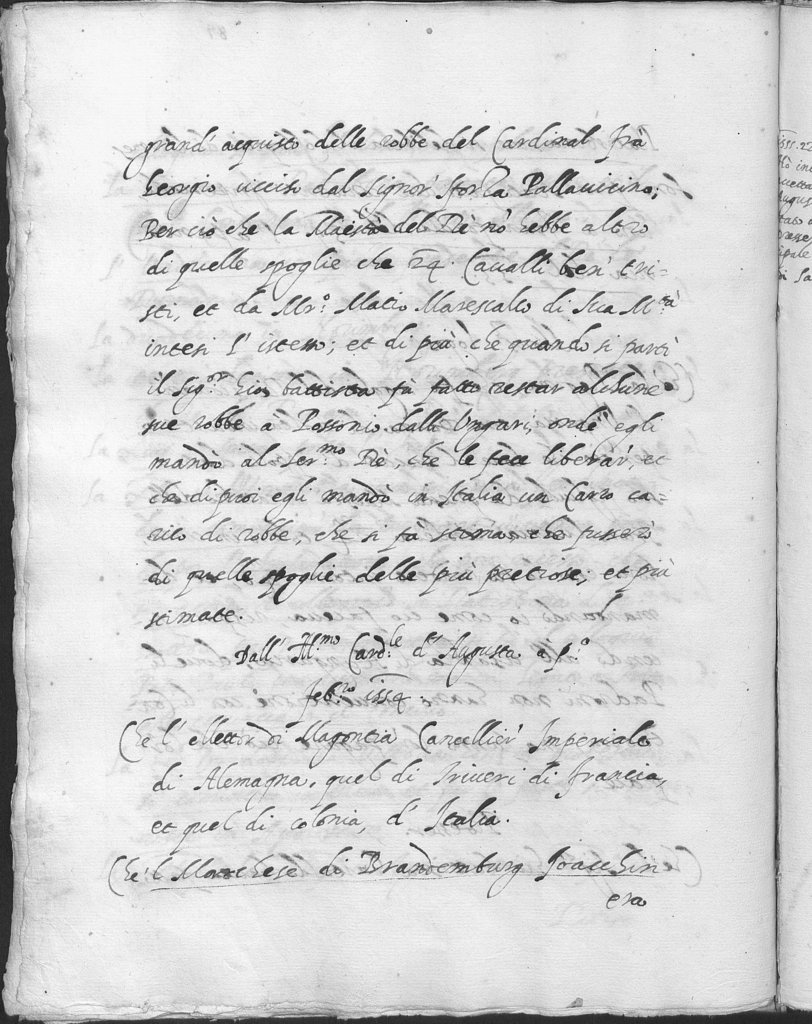 grand' acquisto delle robbe del Cardinal frà
Georgio ucciso dal Signor' Sforza Pallavicino;
Per ciò che la Maestà del Rè nõ hebbe altro
di quelle spoglie che 24. Cavalli ben' tri=
sti, et da Mr.º Matio Marescalco di Sua M.tà
intesi l' istesso; et di più che quando si partì
il Sig.or Gio, battista fù fatto restar' alchune
sue robbe à Possonio dalli Ungari, onde egli
mandò al Ser.mo Rè, che le fece liberar', et
che di puoi egli mandò in Italia un Carro ca=
rico di robbe, che si fà stima, che fussero
di quelle spoglie delle più pretiose, et più
stimate.
Dall' Ill.mo Card.le d' Augusta à p.º
feb.ro 1554
Che l' elettor di Magontia Cancellier' Imperiale
di Alemagna, quel di Triveri di francia,
et quel di colonia, d' Italia.
Che'l Marchese di Brandemburg Joacchin
era
1551. 22